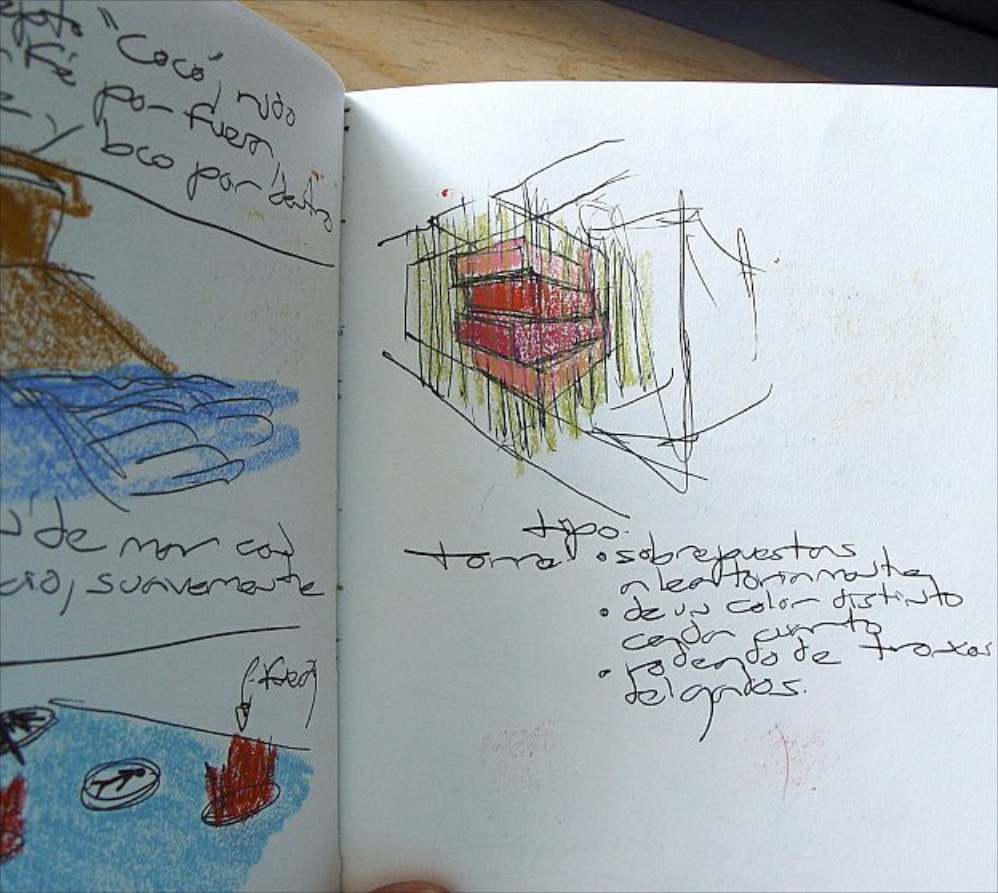 "coco", rudo
por fuera,
y bco por dentro
de mar con
suavemente
(fuera)
tipo
torre • sobrepuestas
aleatoriamente,
• de un color distinto
cada cuarto
• rodeado de troncos
delgados.